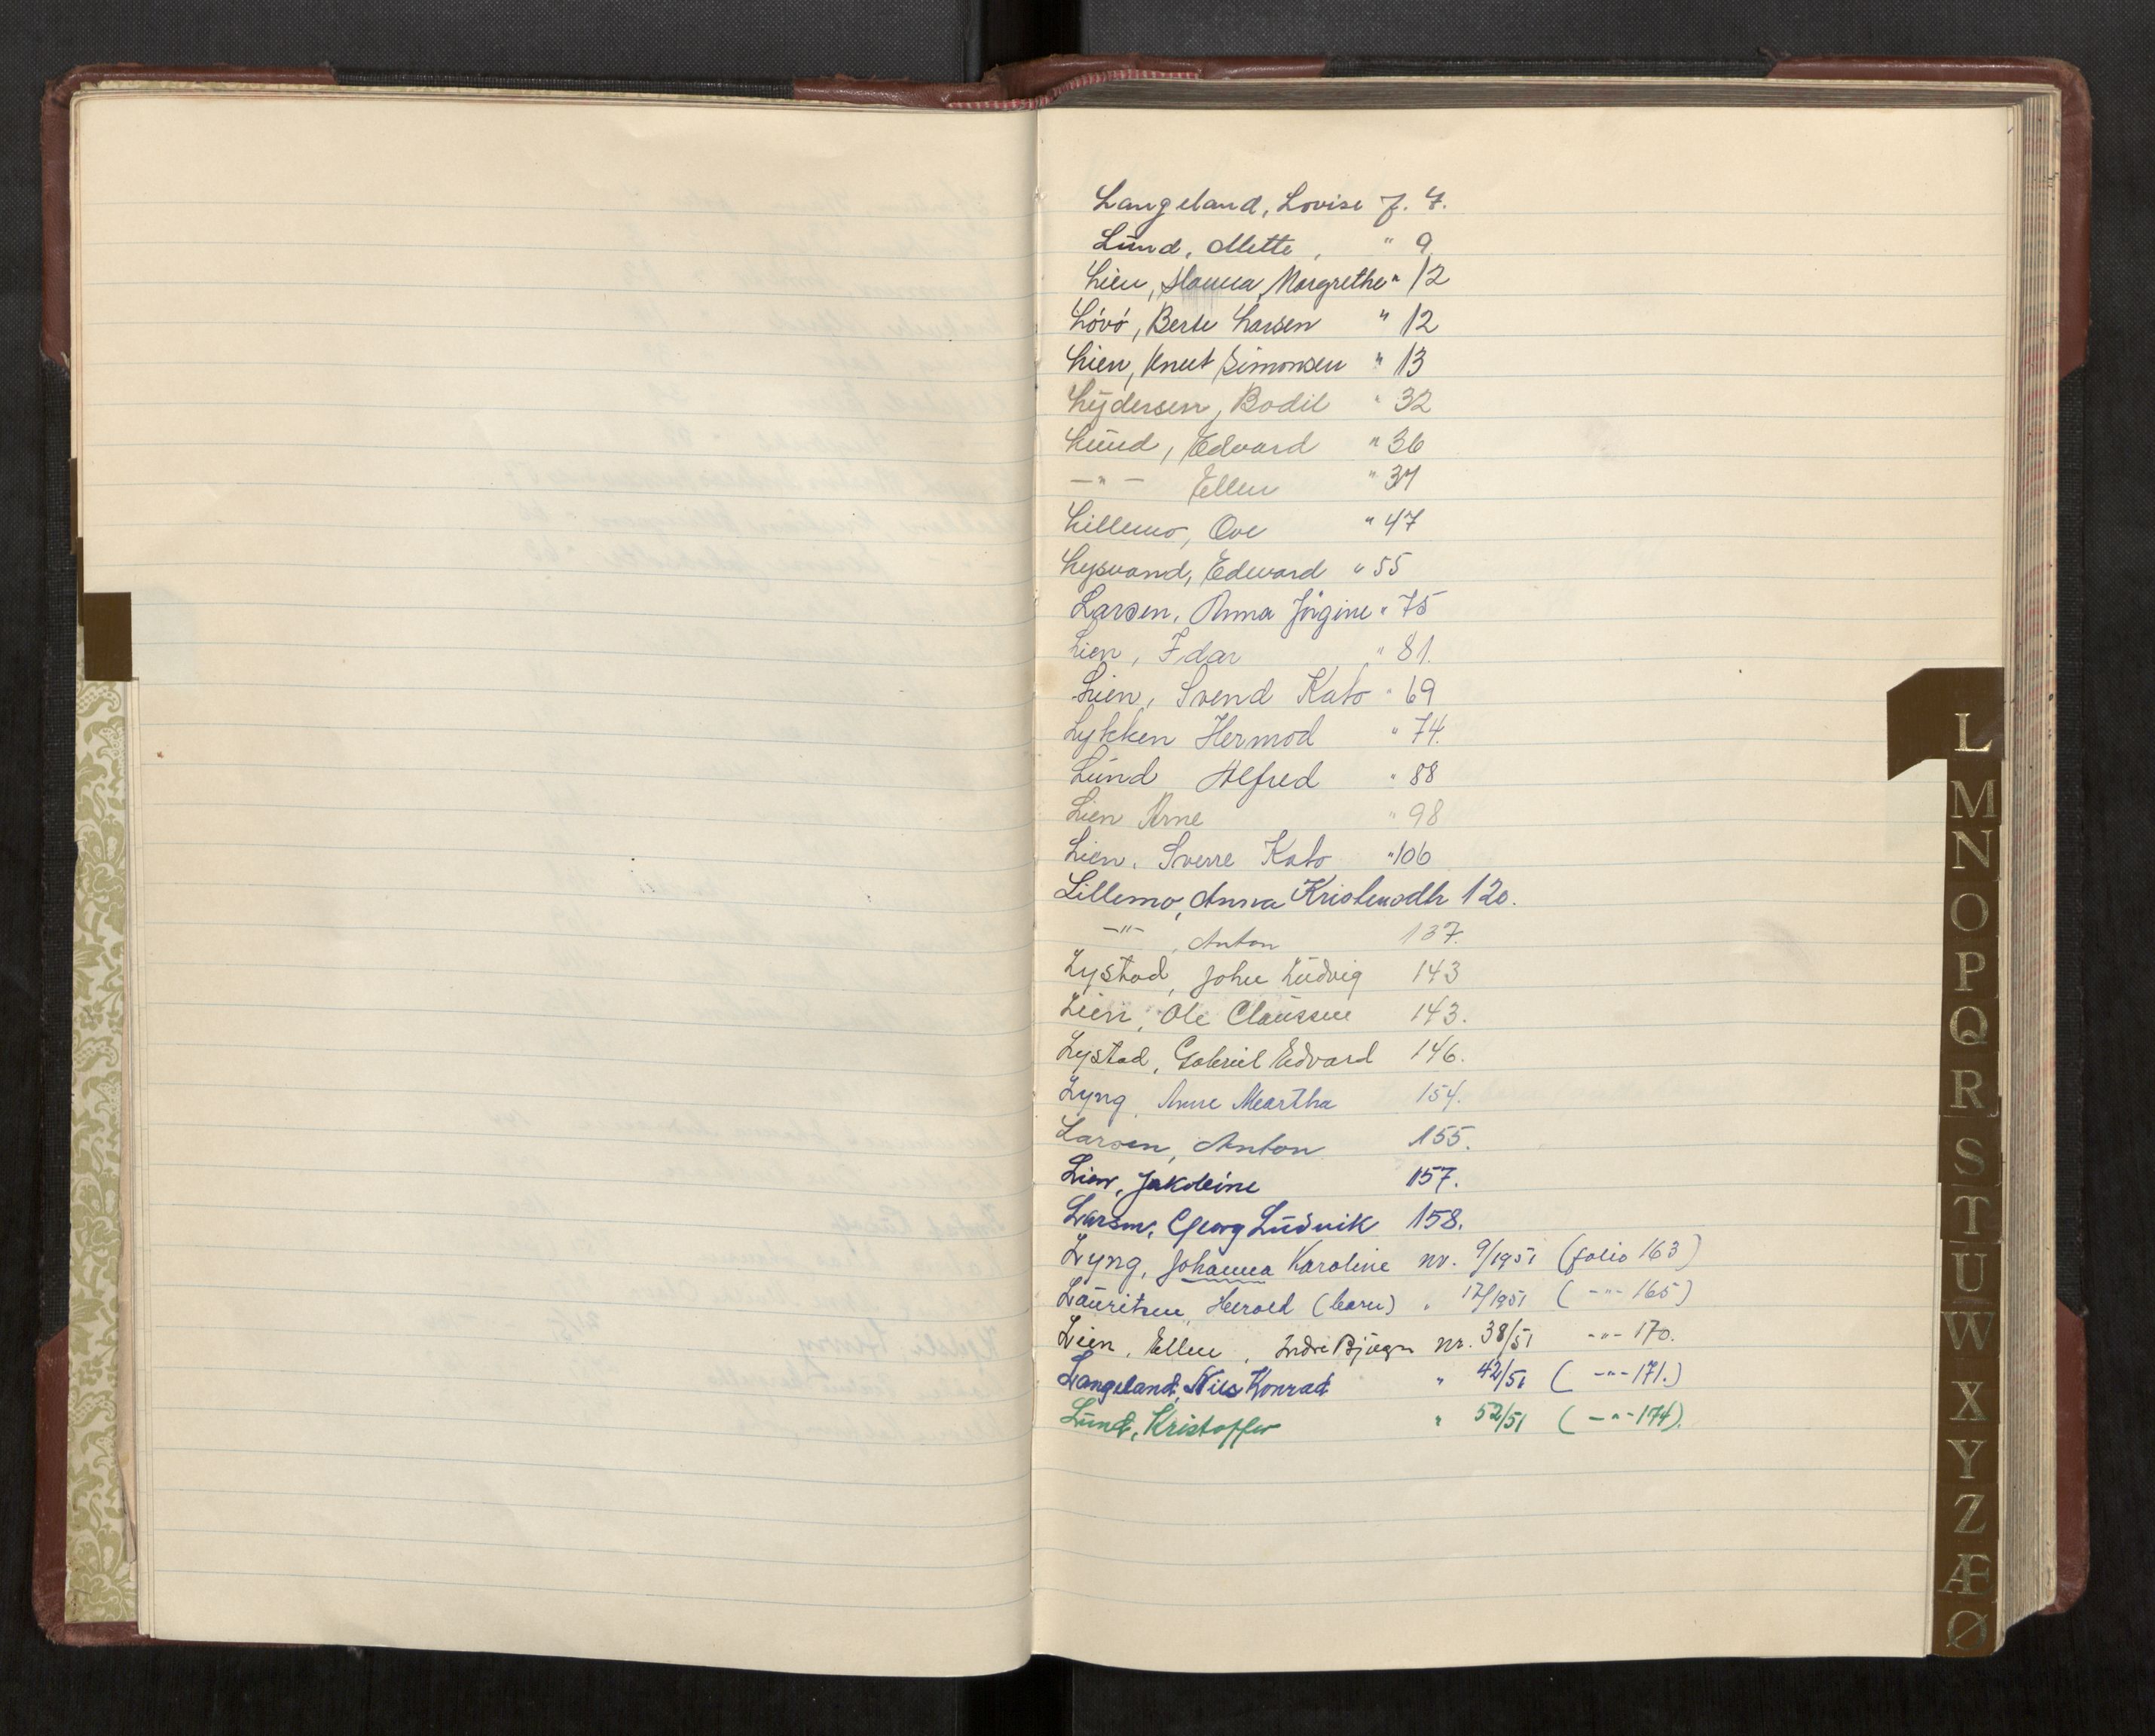 Langeland, Lovise f. 4.
Lund, Mette, " 9
Lien, Hanna Margrethe " 12
Lövö, Berte Larsen " 12
Lien, Knut Simonsen " 13
Lydersen, Bodil " 32
Lund, Edvard " 36
—"— Ellen " 37
Lillemo, Ove " 47
Lysvand, Edvard " 55
Larsen, Anna Jörgine " 75
Lien, Idar " 81.
Lien, Svend Kato " 69
Lykken Hermod " 74.
Lund Alfred " 88
Lien Arne " 98
Lien, Sverre Kato " 106
Lillemo, Anna Kristensdtr 120.
—"— , Anton 137.
Lystad, John Ludvig 143
Lien, Ole Claussen 143.
Lystad, Gabriel Edvard 146.
Lyng, Anne Martha 154.
Larsen, Anton 155.
Lien, Jakobine 157.
Larsen, Georg Ludvik 158.
Lyng, Johanna Karoline nr. 9/1951 (folio 163)
Lauritsen, Harold (barn) " 17/1951 ( -"- 165)
Lien, Ellen, Indre Bjugn nr. 38/51 -"- 170.
Langeland, Nils Konrad " 42/51 ( -"- 171.)
Lund, Kristoffer " 52/51 ( -"- 174).
L
M
N
O
P
Q
R
S
T
U
W
X
Y
Z
Æ
Ø